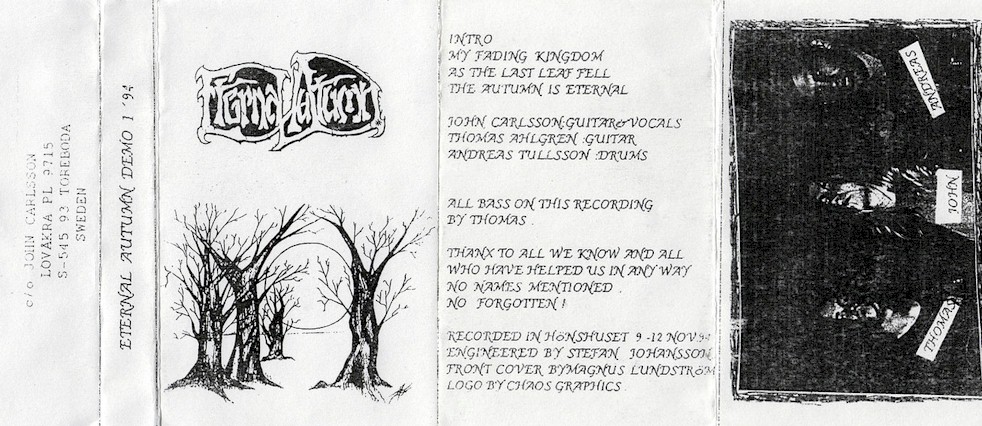 c/o JOHN CARLSSON
LOVÅKRA PL 9715
S-545 93 TOREBODA
SWEDEN
ETERNAL AUTUMN DEMO 1 '94
Eternal Autumn
INTRO
MY FADING KINGDOM
AS THE LAST LEAF FELL
THE AUTUMN IS ETERNAL
JOHN CARLSSON:GUITAR&VOCALS
THOMAS AHLGREN :GUITAR
ANDREAS TULLSSON :DRUMS
ALL BASS ON THIS RECORDING
BY THOMAS .
THANX TO ALL WE KNOW AND ALL
WHO HAVE HELPED US IN ANY WAY
NO NAMES MENTIONED .
NO FORGOTTEN !
RECORDED IN HöNSHUSET 9 -12 NOV.94
ENGINEERED BY STEFAN JOHANSSON
FRONT COVER BYMAGNUS LUNDSTRöM
LOGO BY CHAOS GRAPHICS .
ANDREAS
JOHN
THOMAS